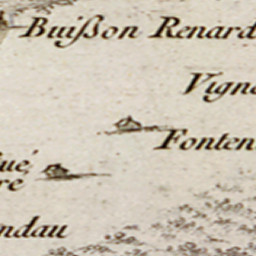 Buißon Renard
Vign
Fonten
ué,
re
ndau